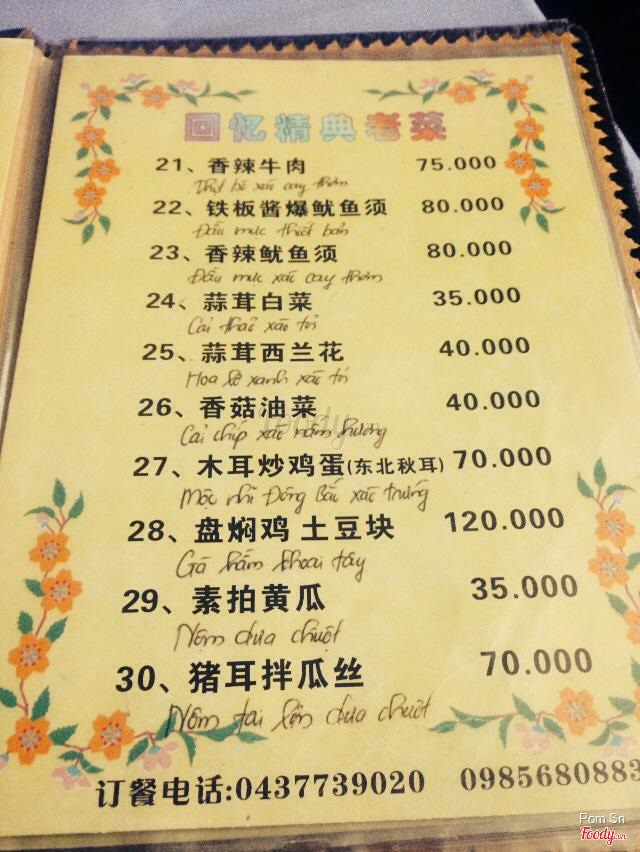 回忆精典老菜
21、香辣牛肉 75.000
Thịt bò xào cay thơm
22、铁板酱爆鱿鱼须 80.000
Đầu mực thiết bản
23、香辣鱿鱼须 80.000
Đầu mực xào cay thơm
24、蒜茸白菜 35.000
Cải thảo xào tỏi
25、蒜茸西兰花 40.000
Hoa lê xanh xào tỏi
26、香菇油菜 40.000
Cải chíp xào nấm hương
27、木耳炒鸡蛋(东北秋耳) 70.000
Mộc nhĩ Đông Bắc xào trứng
28、盘焖鸡 土豆块 120.000
Gà hầm khoai tây
29、素拍黄瓜 35.000
Nộm dưa chuột
30、猪耳拌瓜丝 70.000
Nộm tai lợn dưa chuột
订餐电话:0437739020 0985680883
Pom Sn
Foody.vn